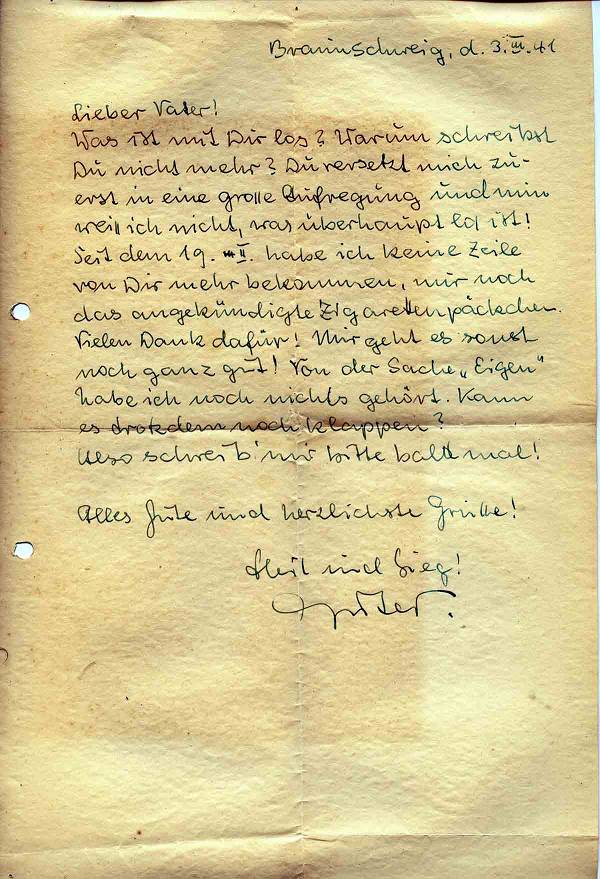 Braunschweig, d. 3.III.41
Lieber Vater!
Was ist mit Dir los? Warum schreibst
Du nicht mehr? Du versetzt mich zu-
erst in eine große Aufregung und nun
weiß ich nicht, was überhaupt los ist!
Seit dem 19. II. habe ich keine Zeile
von Dir mehr bekommen, nur noch
das angekündigte Zigarettenpäckchen.
Vielen Dank dafür! Mir geht es sonst
noch ganz gut! Von der Sache „Eigen"
habe ich noch nichts gehört. Kann
es trotzdem noch klappen?
Also schreib' mir bitte bald mal!
Alles Gute und herzlichste Grüße!
Heil und Sieg!